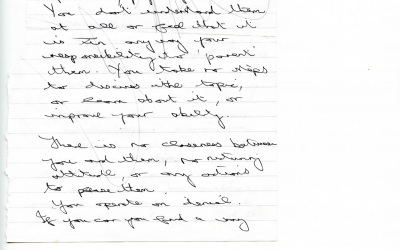 You don't understand them
at all or feel that it
is in any way your
responsibility to 'parent'
them. You take no steps
to discuss the topic,
or learn about it, or
improve your ability.
There is no closeness between
you and them, no nurturing
attitude, or any actions
to please them.
You operate on denial.
If you can you find a way